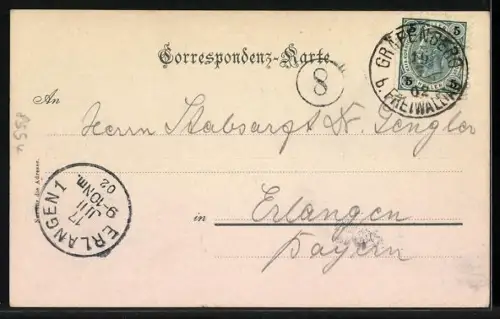 Correspondenz-Karte
GRÄFENBERG
b. FREIWALDAU
02
5 5
8
An
Herrn Stabsarzt Dr. Dengler
in Erlangen
Bayern
Nur für die Adresse.
ERLANGEN 1
17
JUL
9-10Nm.
02